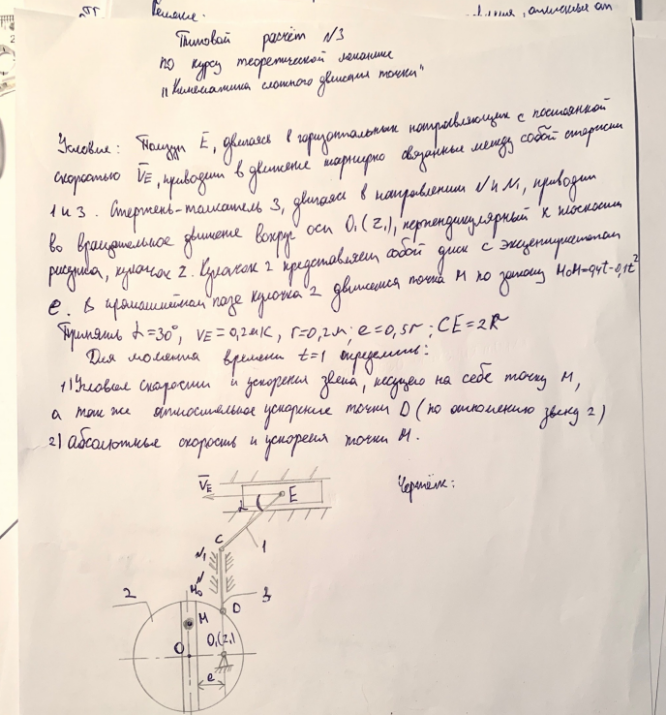 Решение.
Типовой расчёт №3
по курсу теоретической механике
"Кинематика сложного движения точки"
Условие: Ползун E, двигаясь в горизонтальных направляющих с постоянной
скоростью V̅E, приводит в движение шарнирно связанные между собой стержни
1 и 3. Стержень-толкатель 3, двигаясь в направлении N и N1, приводит
во вращательное движение вокруг оси O1(Z1), перпендикулярный к плоскости
рисунка, кулачок 2. Кулачок 2 представляет собой диск с эксцентриситетом
e. В прямолинейном пазе кулачка 2 движется точка M по закону M0M=0,4t-0,1t²
Принять α=30°, VE=0,2м/с, r=0,2м; e=0,5r; CE=2R
Для момента времени t=1 определить:
1) Угловые скорости и ускорения звена, несущего на себе точку M,
а так же относительное ускорение точки D (по отношению звену 2)
2) Абсолютные скорость и ускорения точки M.
V̅E
α
E
Чертёж:
C
1
N1
N
M0
2
3
D
M
O
O1(Z1)
e